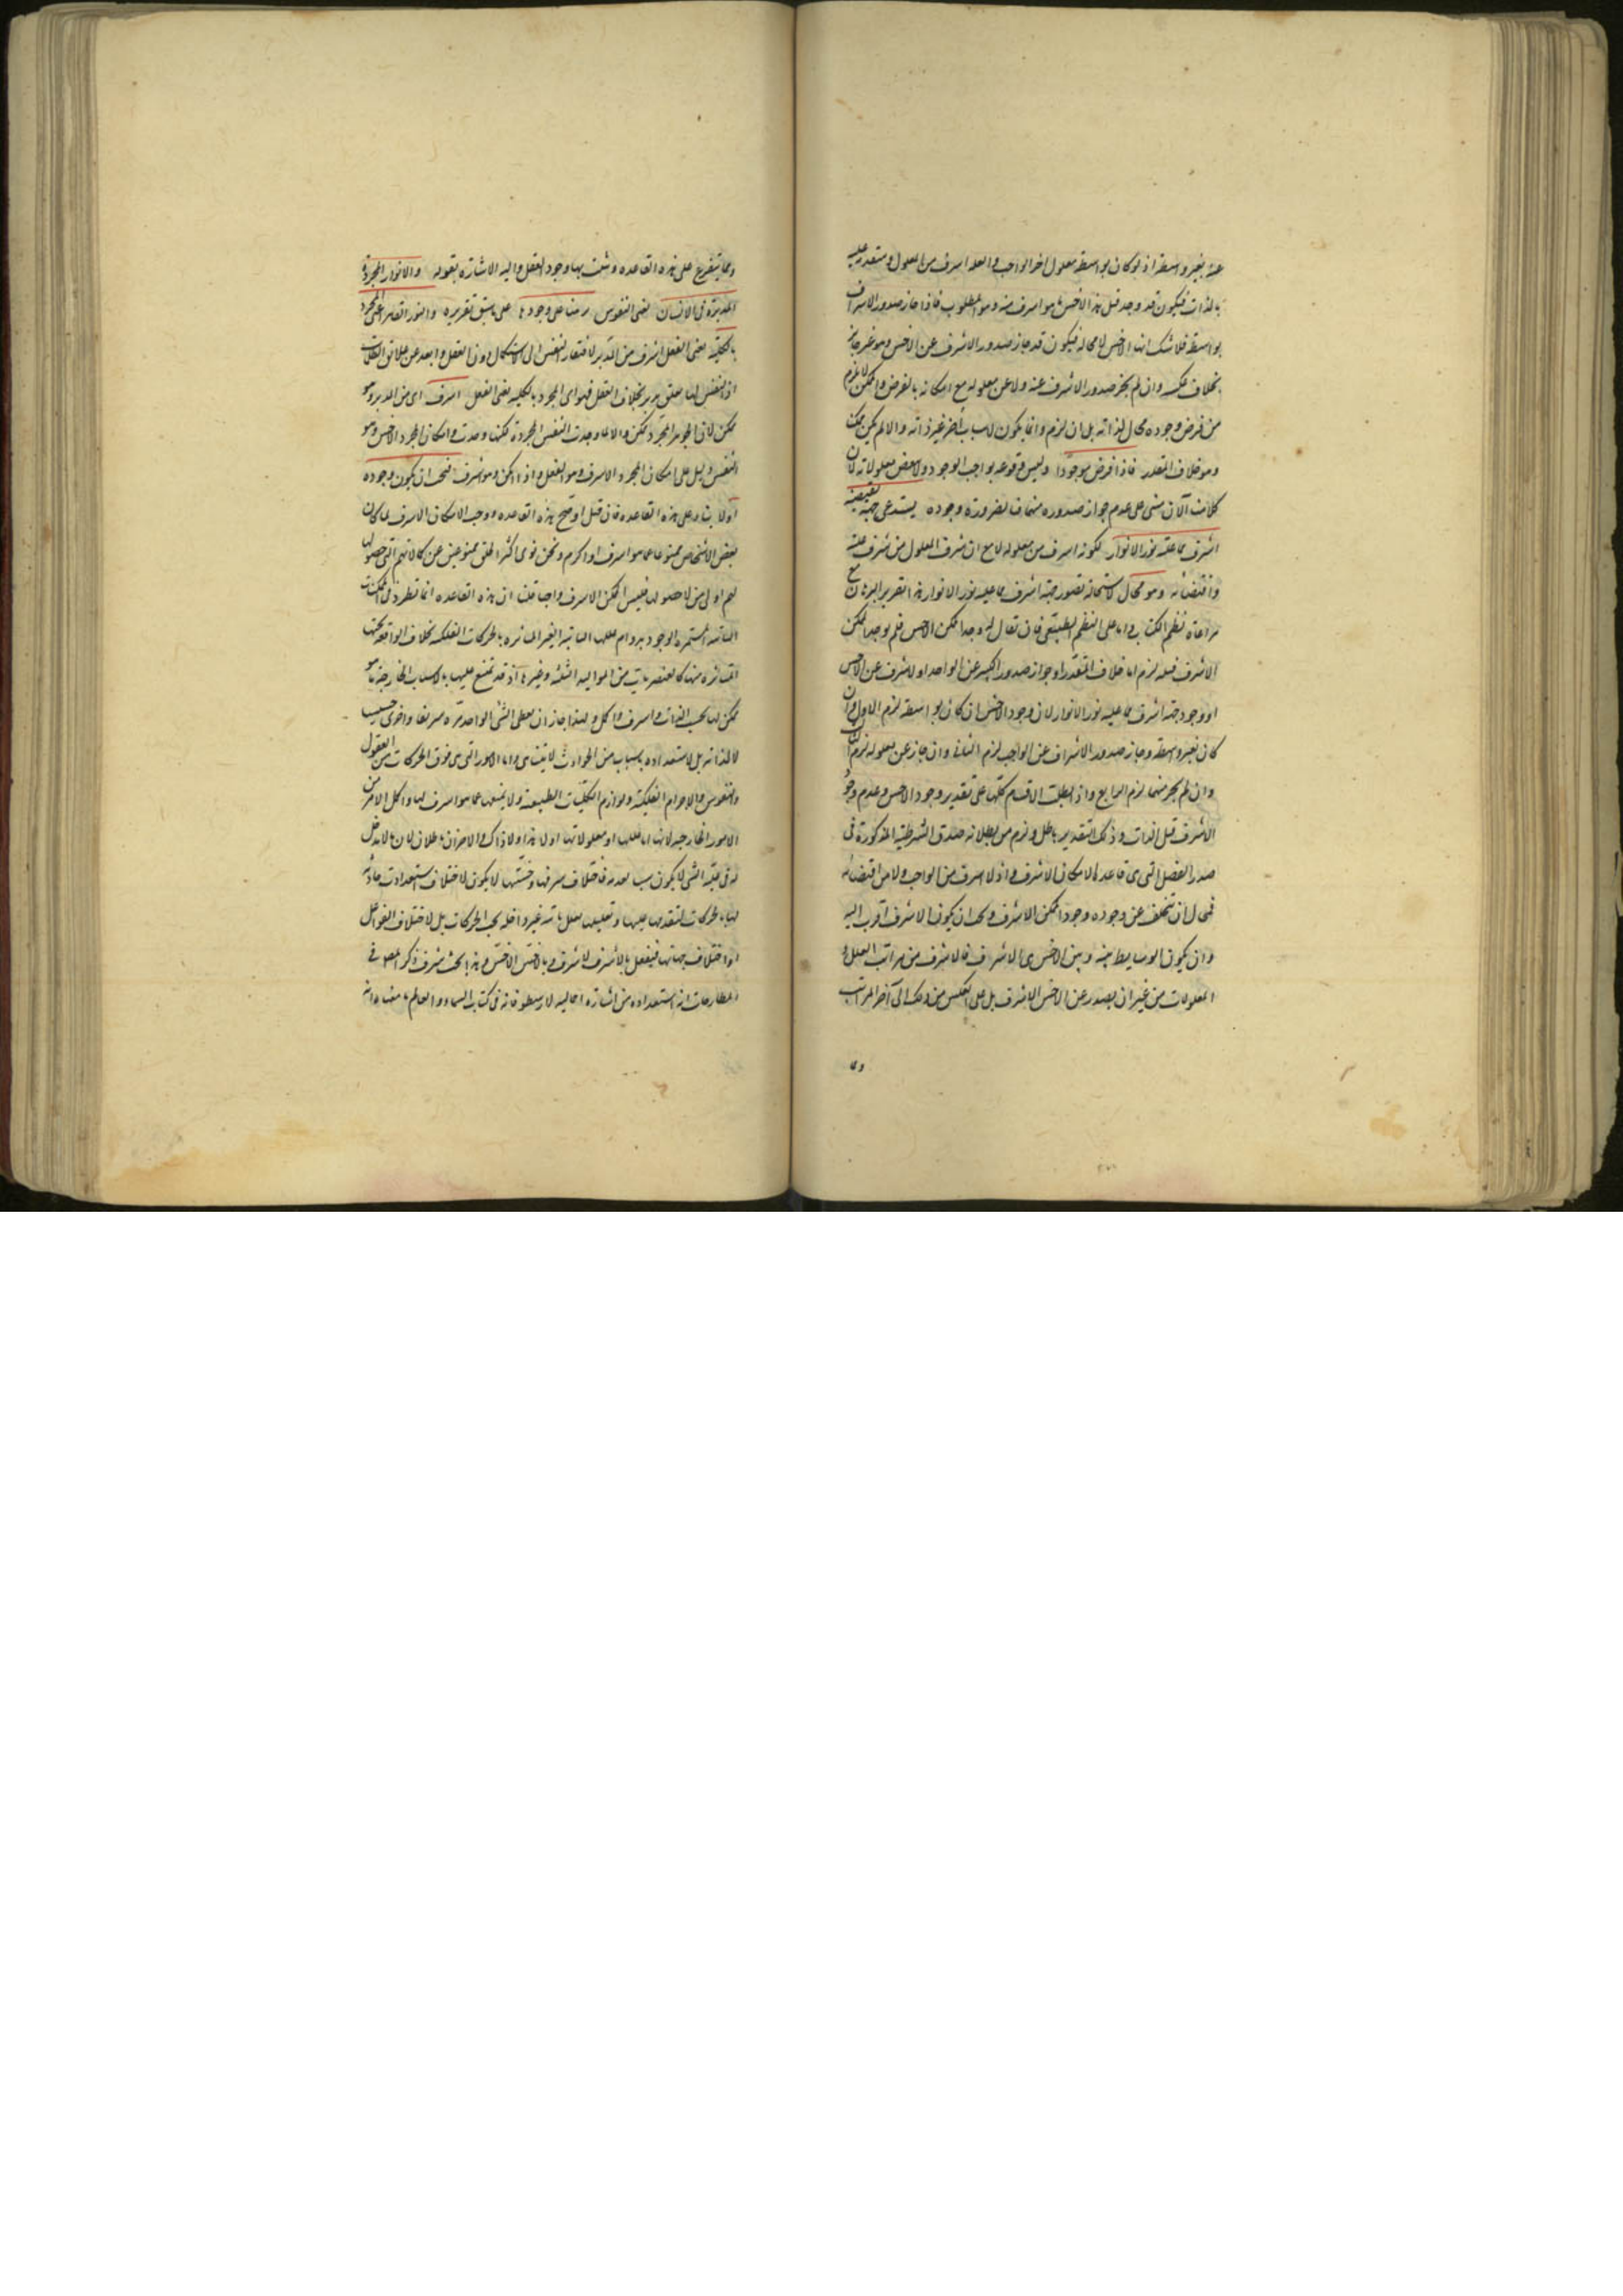 عنه بغير واسطة اذ لو كان بواسطة معلول اخر للواجب والعلة اشرف من المعلول ومتقدمة عليه
بالذات فيكون قد وجد قبل هذا الاخس ما هو اشرف منه وهو المطلوب فاذا جاز صدور الاشرف
بواسطة فلا شك انها الاخس لا محالة فيكون قد جاز صدور الاشرف عن الاخس وهو غير جائز
بخلاف عكسه وان لم يجز صدور الاشرف عنه ولا عن معلوله مع امكانه بالفرض والممكن لا يلزم
من فرض وجوده محال لذاته بل ان لزم فانما يكون لسبب آخر غير ذاته والا لم يكن ممكنا
وهو خلاف المقدر فاذا فرض موجودا وليس وقوعه بواجب الوجود ولا ببعض معلولاته لان
كلامنا الآن مبني على عدم جواز صدوره منهما فبالضرورة وجوده يستدعي جهة تقتضيه
اشرف مما عليه نور الانوار لكونه اشرف من معلوله لا مع ان شرف المعلول من شرف علته
واقتضائه وهو محال لاستحالة تصور جهة اشرف مما عليه نور الانوار هذا تقرير البرهان مع
مراعاة نظم الكتاب واما على النظم الطبيعي فان يقال لو وجد الممكن الاخس فلم يوجد الممكن
الاشرف قبله لزم اما خلاف المقدر او جواز صدور الكثير عن الواحد او الاشرف عن الاخس
او وجود جهة اشرف مما عليه نور الانوار لان وجود الاخس ان كان بواسطة لزم الاول وان
كان بغير واسطة وجاز صدور الاشرف عن الواجب لزم الثاني وان جاز عن معلوله لزم الثالث
وان لم يجز منهما لزم الرابع واذ بطلت الاقسام كلها على تقدير وجود الاخس وعدم وجود
الاشرف قبل الذات وذلك التقدير باطل ولزم من بطلانه صدق الشرطية المذكورة في
صدر الفصل التي هي قاعدة الامكان الاشرف واذ لا اشرف من الواجب ولا من اقتضائه
فمحال ان يتخلف عن وجوده وجود الممكن الاشرف ويجب ان يكون الاشرف اقرب اليه
وان يكون الوسايط بينه وبين الاخس هي الاشرف فالاشرف من مراتب العلل و
المعلولات من غير ان يصدر عن الاخس الاشرف بل على العكس من ذلك الى آخر المراتب
ومما يتفرع على هذه القاعدة ويثبت بها وجود العقل واليه الاشارة بقوله والانوار المجردة
المدبرة في الانسان يعني النفوس برهنا على وجودها على ما سبق تقريره والنور القاهر اعني المجرد
بالكلية يعني العقل اشرف من المدبر لافتقار النفس الى الاستكمال دون العقل وابعد عن علائق الظلمات
اذ النفس لها تعلق تدبير بخلاف العقل فهو اي المجرد بالكلية يعني العقل اشرف اي من المدبر وهو
ممكن لان الجوهر المجرد ممكن والا لما وجدت النفس المجردة لكنها وجدت وامكان المجرد الاخس وهو
النفس دليل على امكان المجرد الاشرف وهو العقل واذا امكن وهو اشرف فيجب ان يكون وجوده
اولا بناء على هذه القاعدة فان قيل لو صح هذه القاعدة ووجب الامكان الاشرف لما كان
بعض الاشخاص ممنوعا عما هو اشرف او اكرم ونحن نرى اكثر الخلق ممنوعين عن كمالاتهم التي حصولها
لهم اولى من لا حصولها فليس الممكن الاشرف واجبا قلنا ان هذه القاعدة انما تطرد في الممكنات
الثابتة المستمرة الوجود بدوام عللها الثابتة الغير المتأثرة بالحركات الفلكية بخلاف الواقعة تحتها
المتأثرة منها كالعنصريات من المواليد الثلثة وغيرها اذ قد تمتنع عليها بالاسباب الخارجة ما هو
ممكن لها بحسب الذات واشرف واكمل ولهذا جاز ان يعطي الشيء الواحد تارة شريفا واخرى خسيسا
لا لذاته بل لاستعداده باسباب من الحوادث لا يتناهى واما الامور التي هي فوق الحركات من العقول
والنفوس والاجرام الفلكية ولوازم الكليات الطبيعية ولا يمنعها عما هو اشرف لها واكمل الامر من
الامور الخارجة لانها اما عللها او معلولاتها او لا هذا ولا ذاك والاخيران باطلان لان ما لا مدخل
له في علية الشيء لا يكون سببا لعدمه فاختلاف شرفها وخستها لا يكون لاختلاف استعدادات حادثة
لها بالحركات لتقدمها عليها وتعليلها بعلل ثابتة غير داخلة تحت الحركات بل لاختلاف الفواعل
او اختلاف جهاتها فيفعل بالاشرف الاشرف وبالاخس الاخس وهذا بحث شريف ذكر المصنف في
المطارحات انه استعداده من اشارة اجمالية لارسطو فانه في كتاب السماء والعالم ما معناه انه